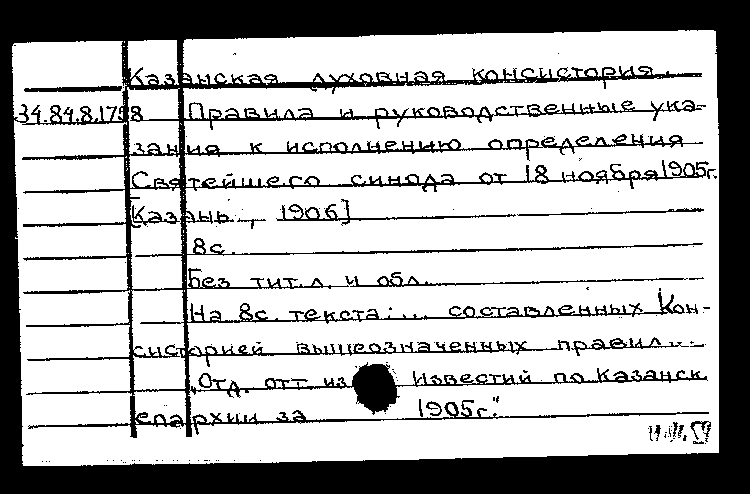 Казанская духовная консистория.
34.84.8.1798 Правила и руководственные ука-
зания к исполнению определения
Святейшего синода от 18 ноября 1905г.
[Казань, 1906]
8с.
Без тит.л. и обл.
На 8с. текста: ... составленных Кон-
систорией вышеозначенных правил...
"Отд. отт. из Известий по Казанск.
епархии за 1905г."